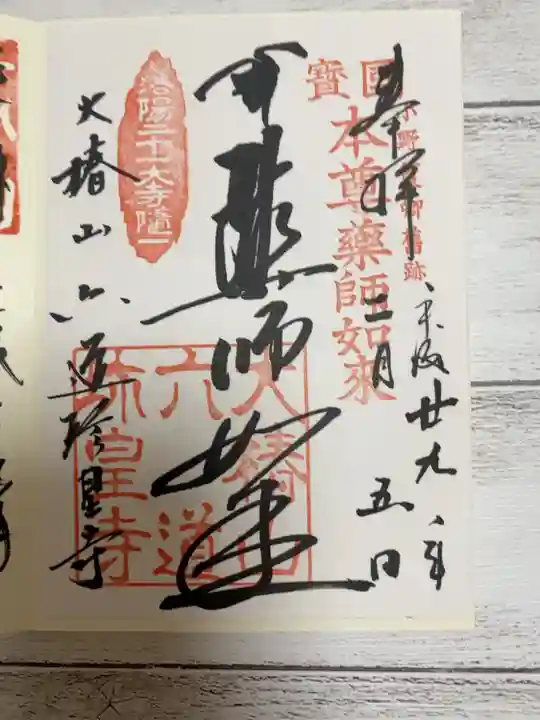 奉拝
平成廿九年
三月五日
国寳
本尊薬師如來
薬師如来
洛陽二十一大寺隨一
大椿山
六道
珍皇寺
大椿山 六道珍皇寺